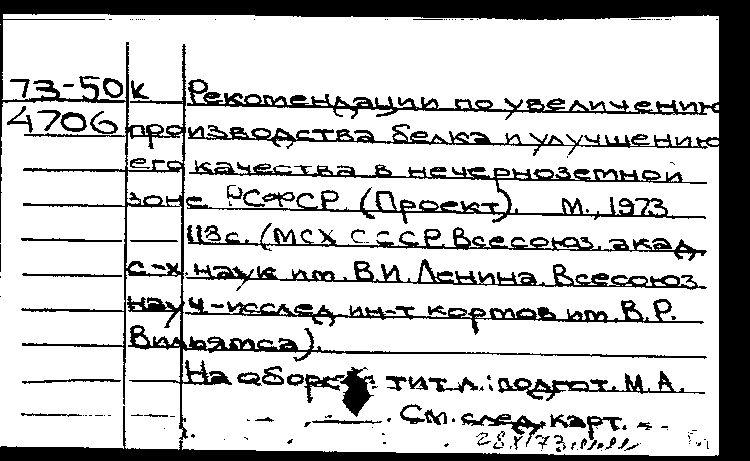 73-50к Рекомендации по увеличению
4706 производства белка и улучшению
его качества в нечерноземной
зоне РСФСР. (Проект). М., 1973
113 с. (МСХ СССР. Всесоюз. акад.
с-х наук им. В.И. Ленина. Всесоюз.
науч-исслед. ин-т кормов им. В.Р.
Вильямса).
На оборотe тит. л.: подгот. М.А.
См. след. карт.
28X/73